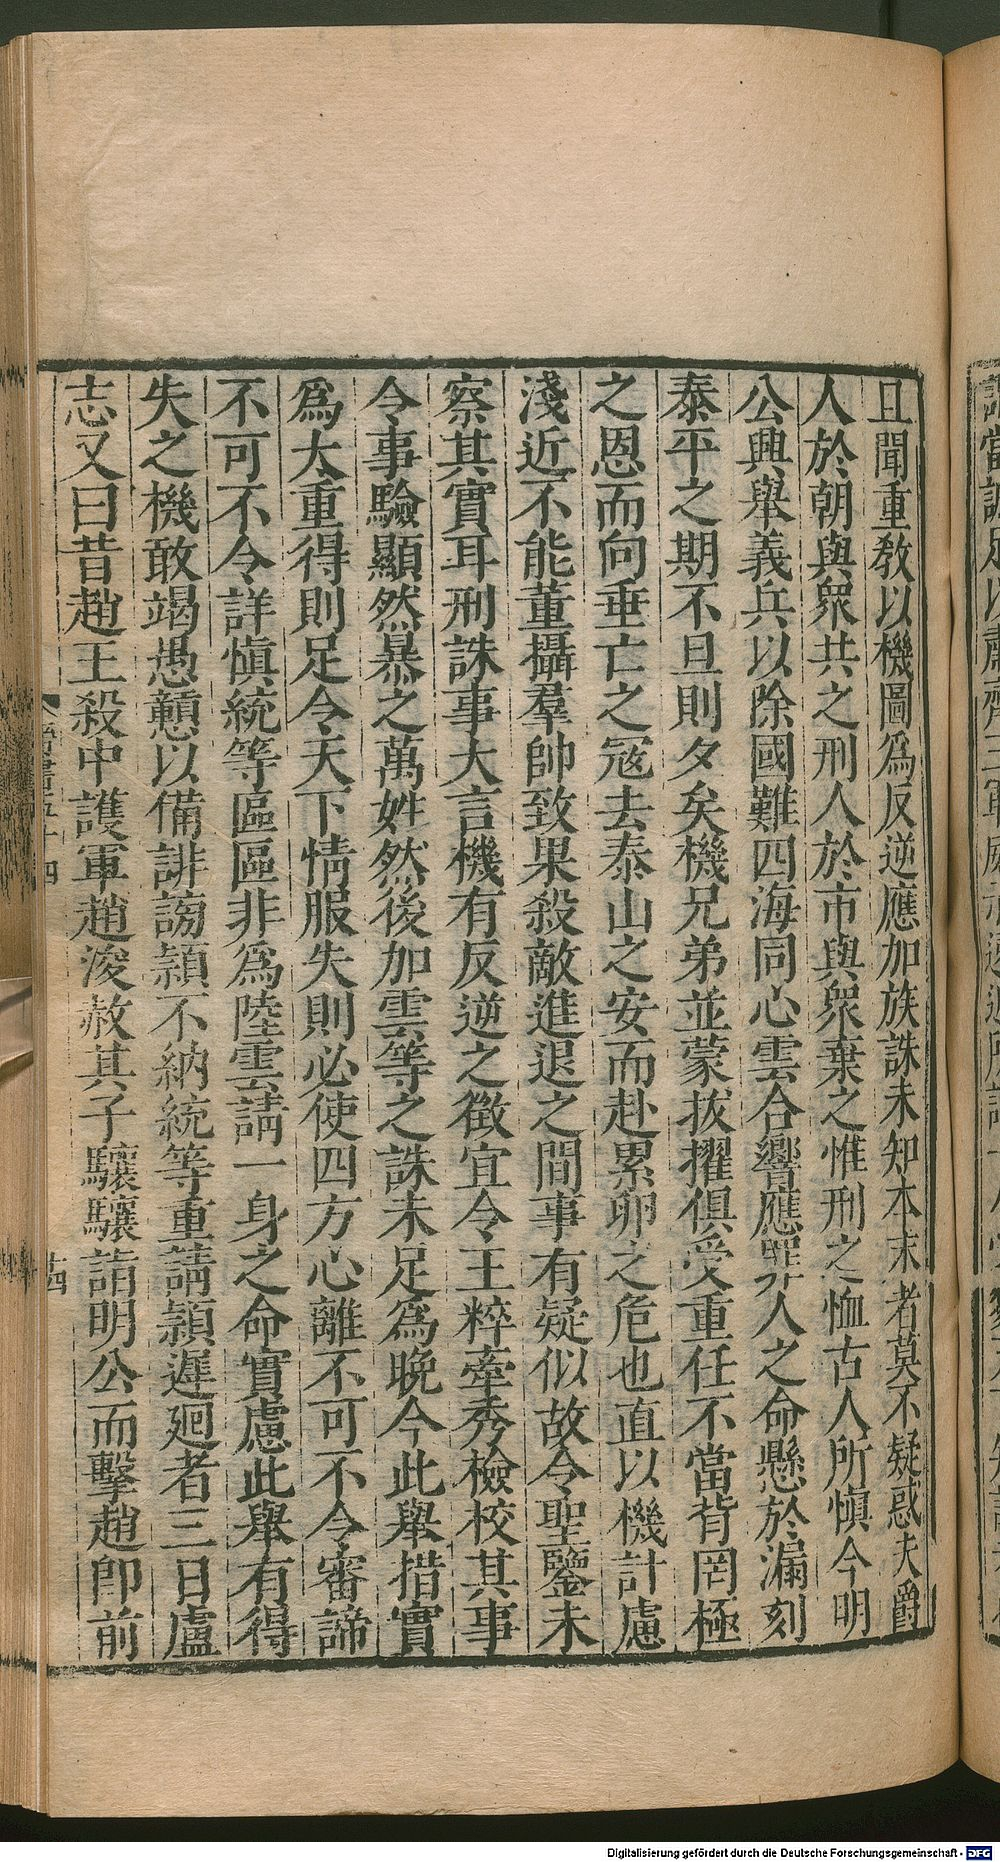 且聞重敎以機圖爲反逆應加族誅未知本末者莫不疑惑夫爵
人於朝與衆共之刑人於市與衆棄之惟刑之恤古人所慎今明
公興舉義兵以除國難四海同心雲合響應罪人之命懸於漏刻
泰平之期不旦則夕矣機兄弟並蒙拔擢俱受重任不當背罔極
之恩而向垂亡之寇去泰山之安而赴累卵之危也直以機計慮
淺近不能董攝羣帥致果殺敵進退之間事有疑似故令聖鑒未
察其實耳刑誅事大言機有反逆之徵宜令王粹牽秀檢校其事
令事驗顯然暴之萬姓然後加雲等之誅未足爲晚今此舉措實
爲大重得則足令天下情服失則必使四方心離不可不令審諦
不可不令詳慎統等區區非爲陸雲請一身之命實慮此舉有得
失之機敢竭愚戇以備誹謗穎不納統等重請穎遲廻者三日盧
志又曰昔趙王殺中護軍趙浚赦其子驤驤詣明公而擊趙卽前
晉書五十四
十四
Digitalisierung gefördert durch die Deutsche Forschungsgemeinschaft - DFG